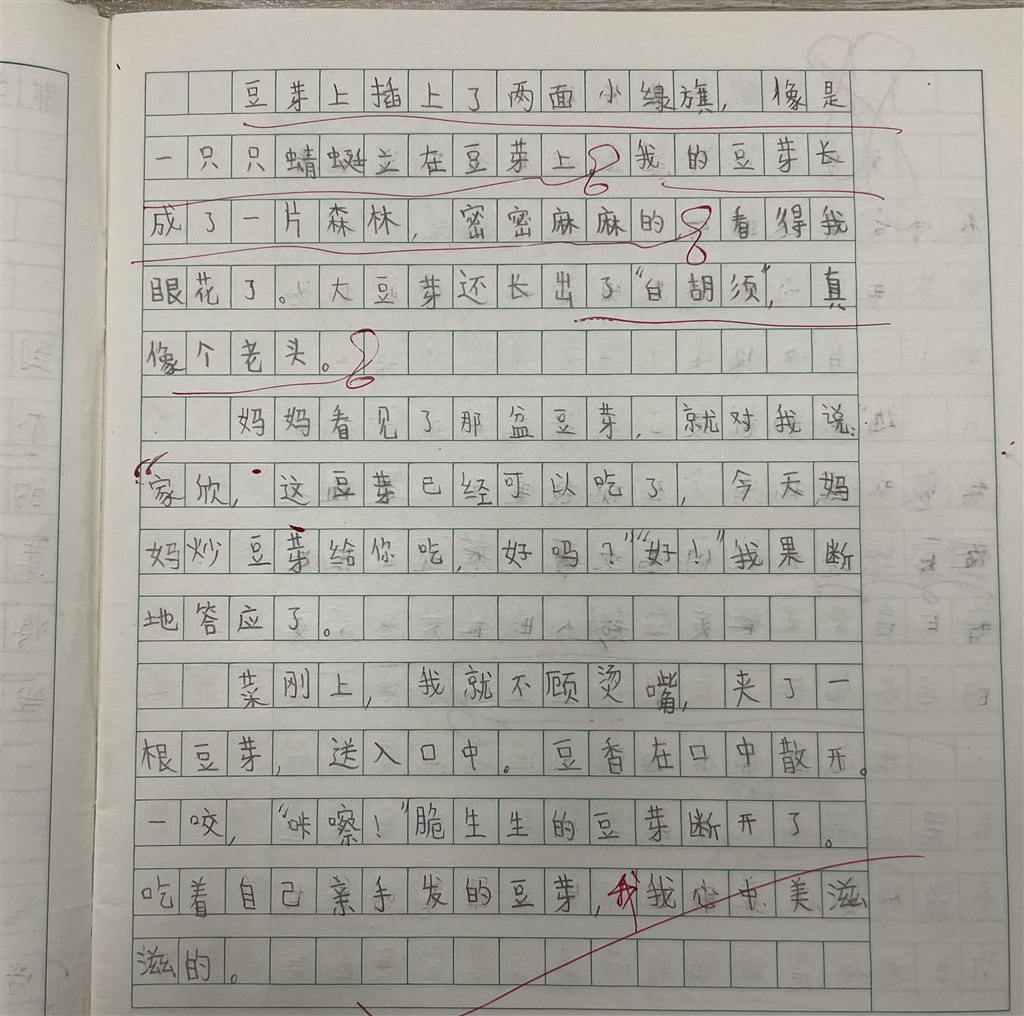 豆芽上插上了两面小绿旗，像是
一只只蜻蜓立在豆芽上。我的豆芽长
成了一片森林，密密麻麻的，看得我
眼花了。大豆芽还长出了“白胡须”，真
像个老头。
妈妈看见了那盆豆芽，就对我说：
“家欣，这豆芽已经可以吃了，今天妈
妈炒豆芽给你吃，好吗？”“好！”我果断
地答应了。
菜刚上，我就不顾烫嘴，夹了一
根豆芽，送入口中。豆香在口中散开。
一咬，“咔嚓！”脆生生的豆芽断开了。
吃着自己亲手发的豆芽，我我心中美滋
滋的。